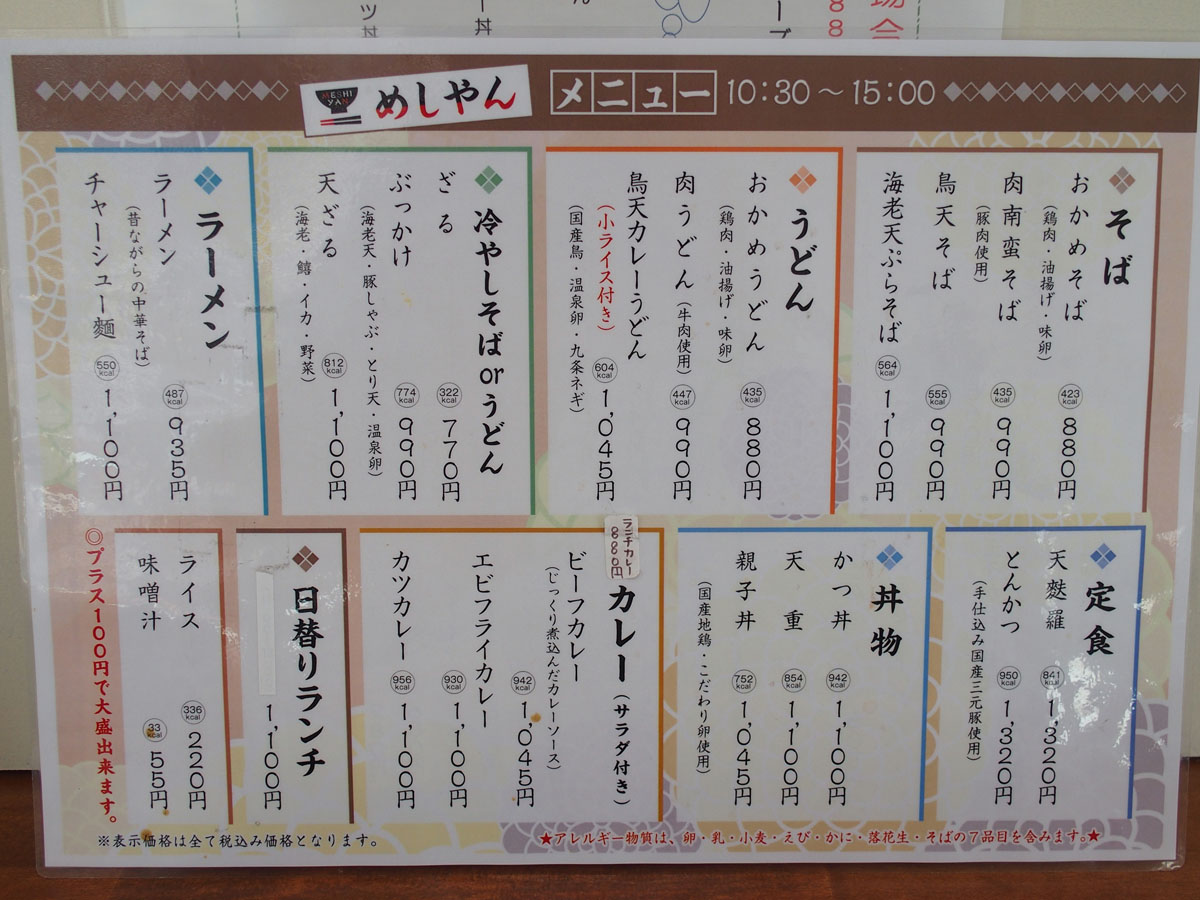 ツ丼
ー丼
ん
ープ
場合
88
MESHI YAN
めしやん
メニュー
10:30～15:00
そば
おかめそば
(鶏肉・油揚げ・味卵)
423 kcal
880円
肉南蛮そば
(豚肉使用)
435 kcal
990円
鳥天そば
555 kcal
990円
海老天ぷらそば
564 kcal
1,100円
うどん
おかめうどん
(鶏肉・油揚げ・味卵)
435 kcal
880円
肉うどん(牛肉使用)
447 kcal
990円
鳥天カレーうどん
(小ライス付き)
(国産鳥・温泉卵・九条ネギ)
604 kcal
1,045円
冷やしそばorうどん
ざる
322 kcal
770円
ぶっかけ
(海老天・豚しゃぶ・とり天・温泉卵)
774 kcal
990円
天ざる
(海老・鱚・イカ・野菜)
812 kcal
1,100円
ラーメン
ラーメン
(昔ながらの中華そば)
487 kcal
935円
チャーシュー麺
550 kcal
1,100円
定食
天麩羅
841 kcal
1,320円
とんかつ
(手仕込み国産三元豚使用)
950 kcal
1,320円
丼物
かつ丼
942 kcal
1,100円
天重
854 kcal
1,100円
親子丼
(国産地鶏・こだわり卵使用)
752 kcal
1,045円
ランチカレー
880円
カレー(サラダ付き)
ビーフカレー
(じっくり煮込んだカレーソース)
942 kcal
1,045円
エビフライカレー
930 kcal
1,100円
カツカレー
956 kcal
1,100円
日替りランチ
1,100円
ライス
336 kcal
220円
味噌汁
33 kcal
55円
◎プラス100円で大盛出来ます。
※表示価格は全て税込み価格となります。
★アレルギー物質は、卵・乳・小麦・えび・かに・落花生・そばの7品目を含みます。★